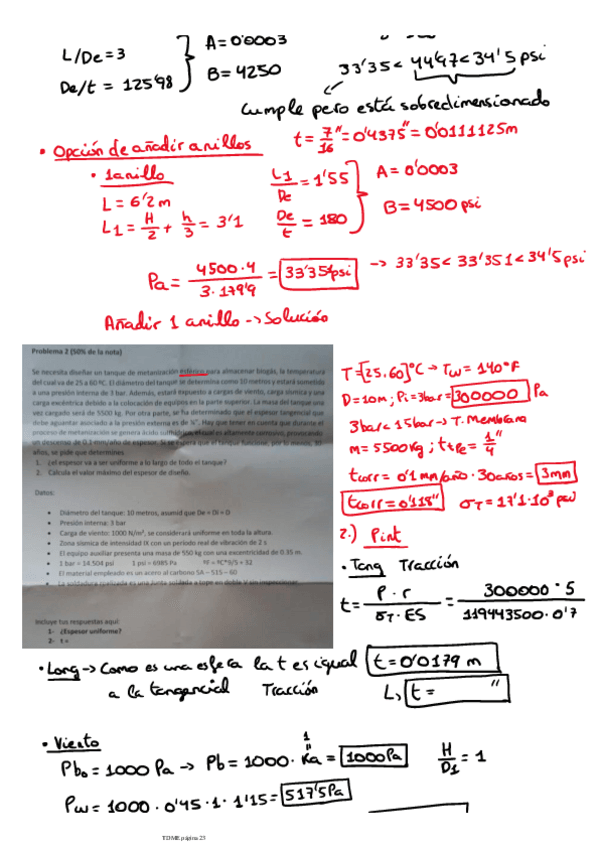 L/De = 3
De/t = 125'98
A = 0'0003
B = 4250
33'35 < 44'97 < 34'5 psi
Cumple pero está sobredimensionado
• Opción de añadir anillos
t = 7/16" = 0'4375" = 0'0111125m
• 1 anillo
L = 6'2 m
L1 = H/2 + h/3 = 3'1
L1/De = 1'55
De/t = 180
A = 0'0003
B = 4500 psi
Pa = 4500·4 / 3·179'9 = 33'351 psi
→ 33'35 < 33'351 < 34'5 psi
Añadir 1 anillo → Solución
Problema 2 (50% de la nota)
Se necesita diseñar un tanque de metanización esférico para almacenar biogás, la temperatura
del cual va de 25 a 60 ºC. El diámetro del tanque se determina como 10 metros y estará sometido
a una presión interna de 3 bar. Además, estará expuesto a cargas de viento, carga sísmica y una
carga excéntrica debido a la colocación de equipos en la parte superior. La masa del tanque una
vez cargado será de 5500 kg. Por otra parte, se ha determinado que el espesor tangencial que
debe aguantar asociado a la presión externa es de ¼". Hay que tener en cuenta que durante el
proceso de metanización se genera ácido sulfhídrico, el cual es altamente corrosivo, provocando
un descenso de 0.1 mm/año de espesor. Si se espera que el tanque funcione, por lo menos, 30
años, se pide que determines
1. ¿el espesor va a ser uniforme a lo largo de todo el tanque?
2. Calcula el valor máximo del espesor de diseño.
Datos:
• Diámetro del tanque: 10 metros, asumid que De = Di = D
• Presión interna: 3 bar
• Carga de viento: 1000 N/m², se considerará uniforme en toda la altura.
• Zona sísmica de intensidad IX con un periodo real de vibración de 2 s
• El equipo auxiliar presenta una masa de 550 kg con una excentricidad de 0.35 m.
• 1 bar = 14.504 psi 1 psi = 6985 Pa ºF = ºC*9/5 + 32
• El material empleado es un acero al carbono SA – 515 – 60
• La soldadura empleada es una junta soldada a tope en doble V sin inspeccionar.
Incluye tus respuestas aquí:
1- ¿Espesor uniforme?
2- t =
T = [25.60]ºC → Tw = 140ºF
D = 10m ; Pi = 3bar = 300000 Pa
3bar < 15bar → T. Membrana
m = 5500Kg ; ttPe = 1"/4
tcorr = 0'1 mm/año · 30años = 3mm
tcorr = 0'118" σT = 17'1·10³ psi
2.) Pint
• Tang Tracción
t = P·r / σT·ES = 300000·5 / 119443500·0'7
• Long → Como es una esfera la t es igual t = 0'0179 m
a la tangencial Tracción L, t = "
• Viento
Pb0 = 1000 Pa → Pb = 1000 · Ka = 1000Pa
1
H/D1 = 1
Pw = 1000 · 0'45 · 1 · 1'15 = 517'5Pa
TDME página 23